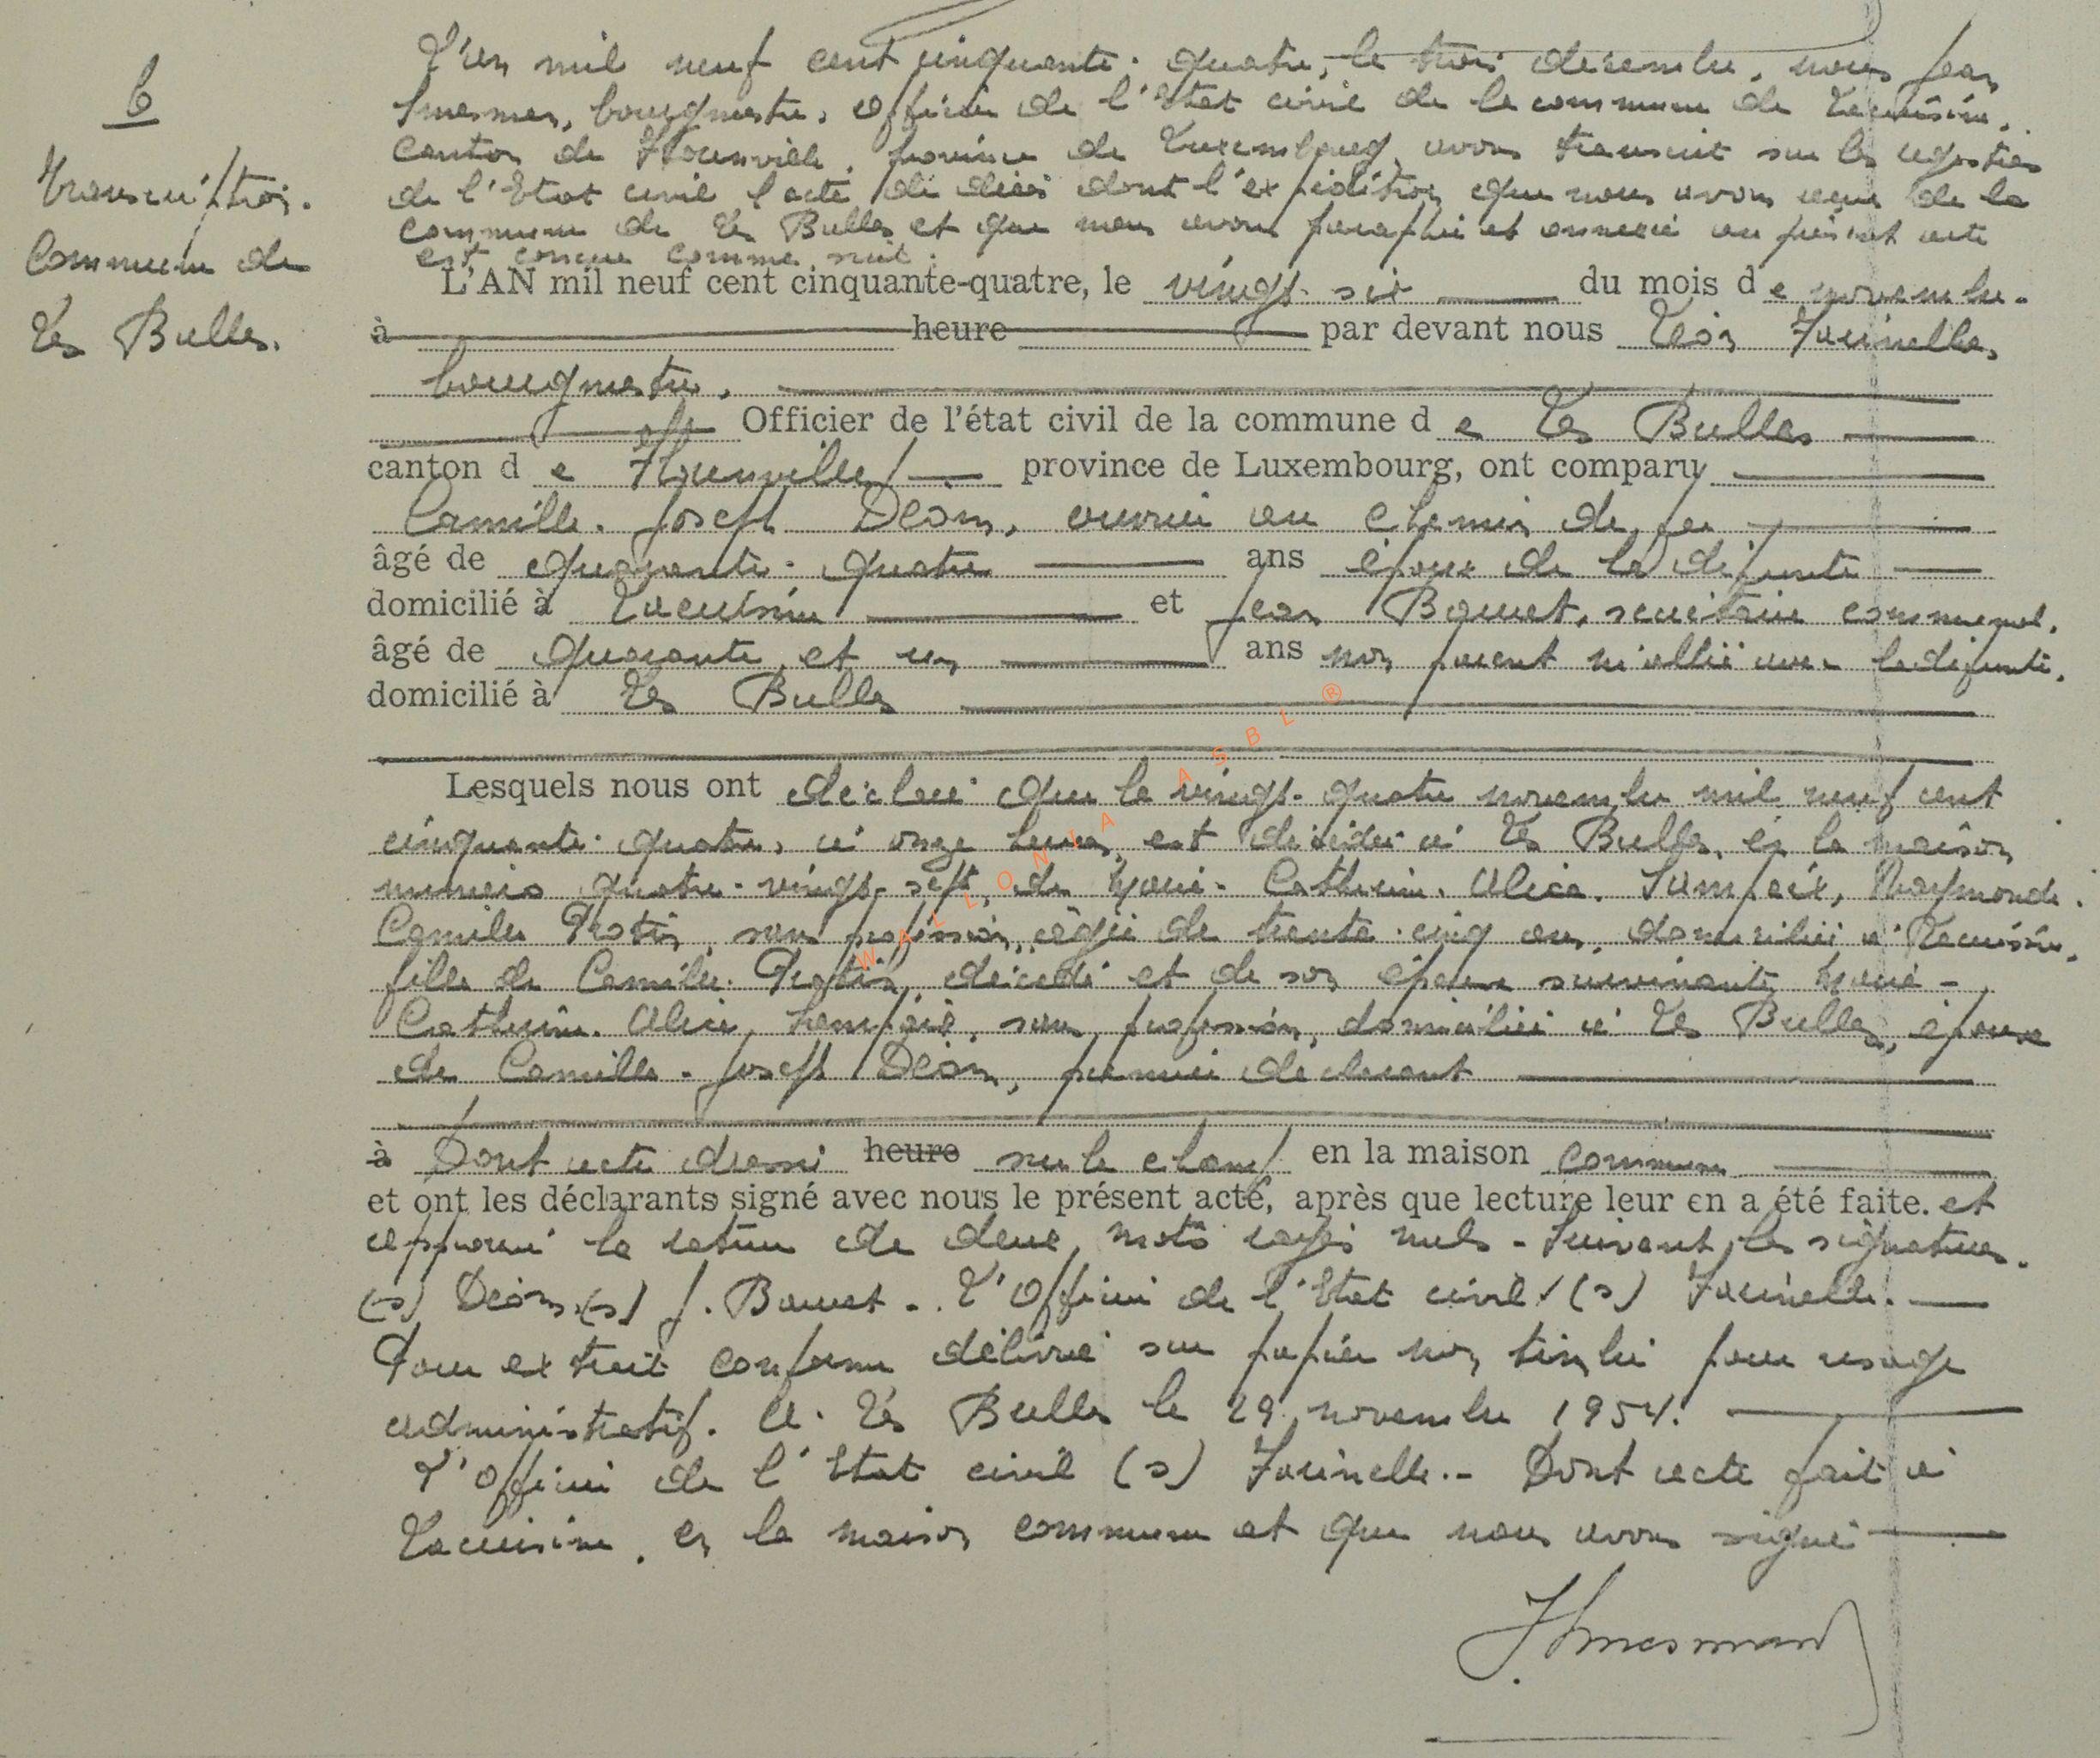 6
Transcription.
Commune de
Les Bulles.
L'an mil neuf cent cinquante-quatre, le trois décembre, nous Jean
bourgmestre, Officier de l'Etat civil de la commune de Lacuisine,
Canton de Florenville, province de Luxembourg, avons transcrit sur les registres
de l'Etat civil l'acte de décès dont l'expédition que nous avons reçue de la
commune de Les Bulles et que nous avons paraphée et annexée au présent acte
est conçue comme suit :
L'AN mil neuf cent cinquante-quatre, le vingt-six du mois de novembre.
à heure par devant nous Léon Farinelle,
bourgmestre,
Officier de l'état civil de la commune de Les Bulles
canton de Florenville province de Luxembourg, ont comparu
Camille-Joseph Déom, ouvrier au chemin de fer
âgé de quarante-quatre ans époux de la défunte
domicilié à Lacuisine et Jean Bauret, secrétaire communal,
âgé de quarante et un ans non parent ni allié avec la défunte,
domicilié à Les Bulles
Lesquels nous ont déclaré que le vingt-quatre novembre mil neuf cent
cinquante-quatre, à onze heures, est décédée à Les Bulles, en la maison
numéro quatre-vingt-sept, de Marie-Catherine-Alice Raymonde-
Camille Protin, sans profession, âgée de trente-cinq ans, domiciliée à Lacuisine,
fille de Camille Protin, décédé et de son épouse survivante Marie-
Catherine-Alice sans profession, domiciliée à Les Bulles, épouse
de Camille-Joseph Déom, premier déclarant
à Dont acte dressé heure sur le champ en la maison commune
et ont les déclarants signé avec nous le présent acte, après que lecture leur en a été faite. et
approuvé la rature de deux mots rayés nuls - Suivent les signatures.
(s) Déom (s) J. Bauret - L'Officier de l'Etat civil (s) Farinelle.
Pour extrait conforme délivré sur papier non timbré pour usage
administratif. A Les Bulles le 29 novembre 1954.
L'Officier de l'Etat civil (s) Farinelle.- Dont acte fait à
Lacuisine, en la maison commune et que nous avons signé
WALLONIA ASBL ®